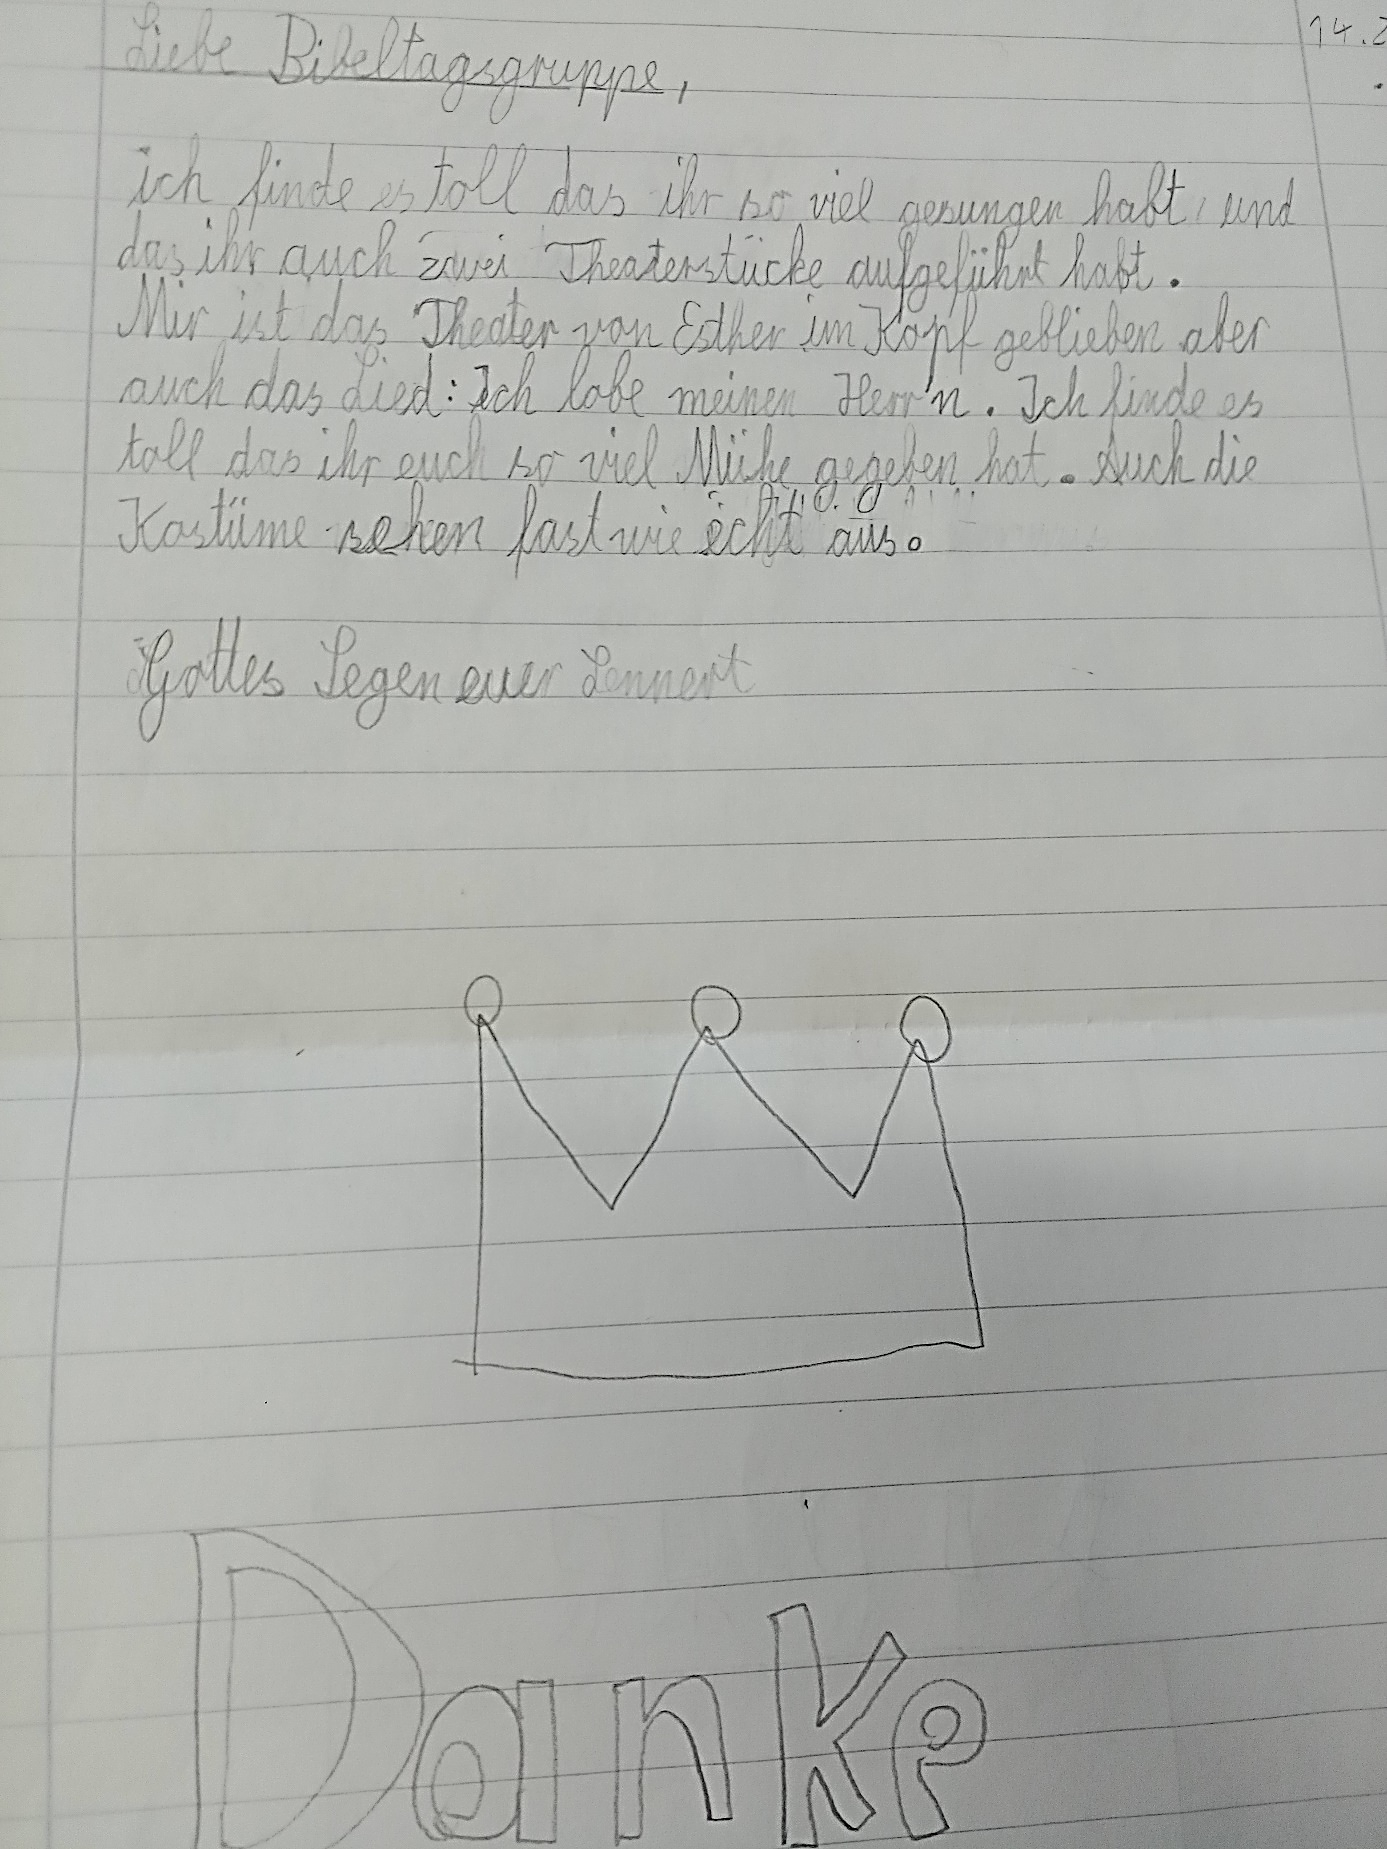 14.2
Liebe Bibeltagsgruppe,
ich finde es toll das ihr so viel gesungen habt, und
das ihr auch zwei Theaterstücke aufgeführt habt.
Mir ist das Theater von Esther im Kopf geblieben aber
auch das Lied: Ich lobe meinen Herr'n. Ich finde es
toll das ihr euch so viel Mühe gegeben hat. Auch die
Kostüme sehen fast wie echt aus.
Gottes Segen euer Lennert
Danke